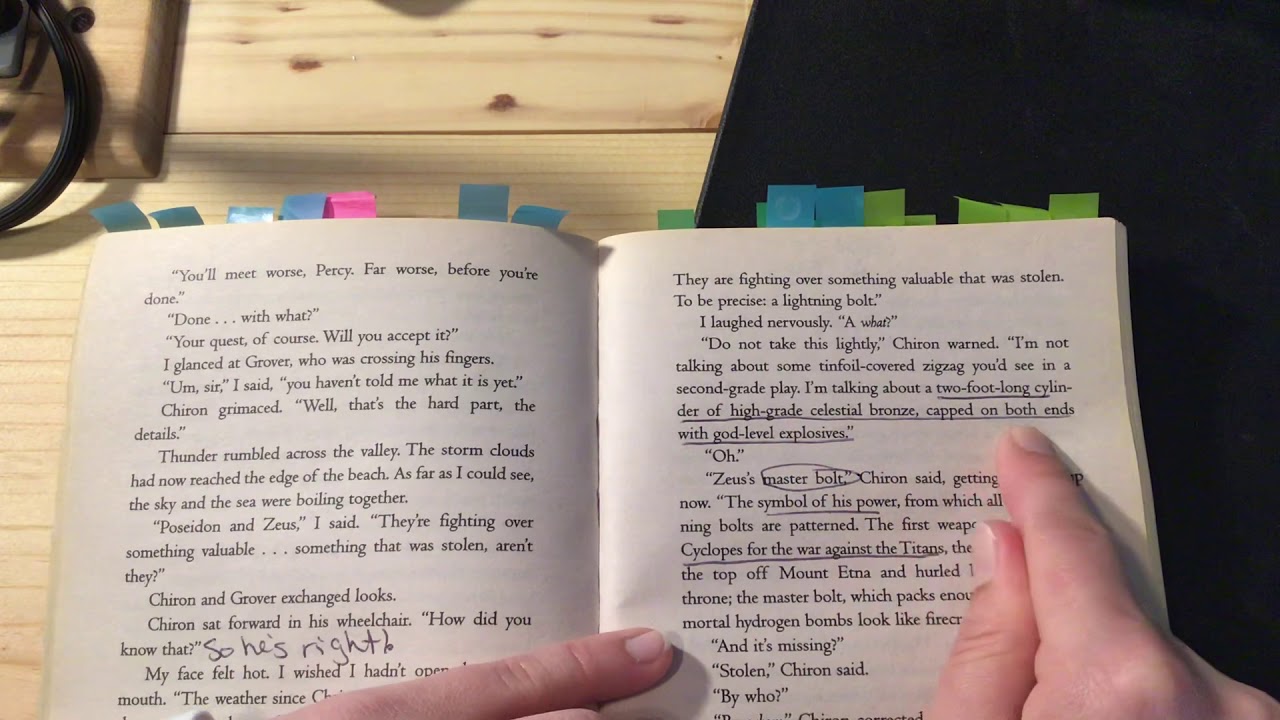 “You’ll meet worse, Percy. Far worse, before you’re
done.”
“Done . . . with what?”
“Your quest, of course. Will you accept it?”
I glanced at Grover, who was crossing his fingers.
“Um, sir,” I said, “you haven’t told me what it is yet.”
Chiron grimaced. “Well, that’s the hard part, the
details.”
Thunder rumbled across the valley. The storm clouds
had now reached the edge of the beach. As far as I could see,
the sky and the sea were boiling together.
“Poseidon and Zeus,” I said. “They’re fighting over
something valuable . . . something that was stolen, aren’t
they?”
Chiron and Grover exchanged looks.
Chiron sat forward in his wheelchair. “How did you
know that?” So he's right!
My face felt hot. I wished I hadn’t
mouth. “The weather since
They are fighting over something valuable that was stolen.
To be precise: a lightning bolt.”
I laughed nervously. “A what?”
“Do not take this lightly,” Chiron warned. “I’m not
talking about some tinfoil-covered zigzag you’d see in a
second-grade play. I’m talking about a two-foot-long cylin-
der of high-grade celestial bronze, capped on both ends
with god-level explosives.”
“Oh.”
“Zeus’s master bolt,” Chiron said, getting
now. “The symbol of his power, from which all
ning bolts are patterned. The first
Cyclopes for the war against the Titans, the
the top off Mount Etna and hurled
throne; the master bolt, which packs
mortal hydrogen bombs look like
“And it’s missing?”
“Stolen,” Chiron said.
“By who?”
Chiron corrected